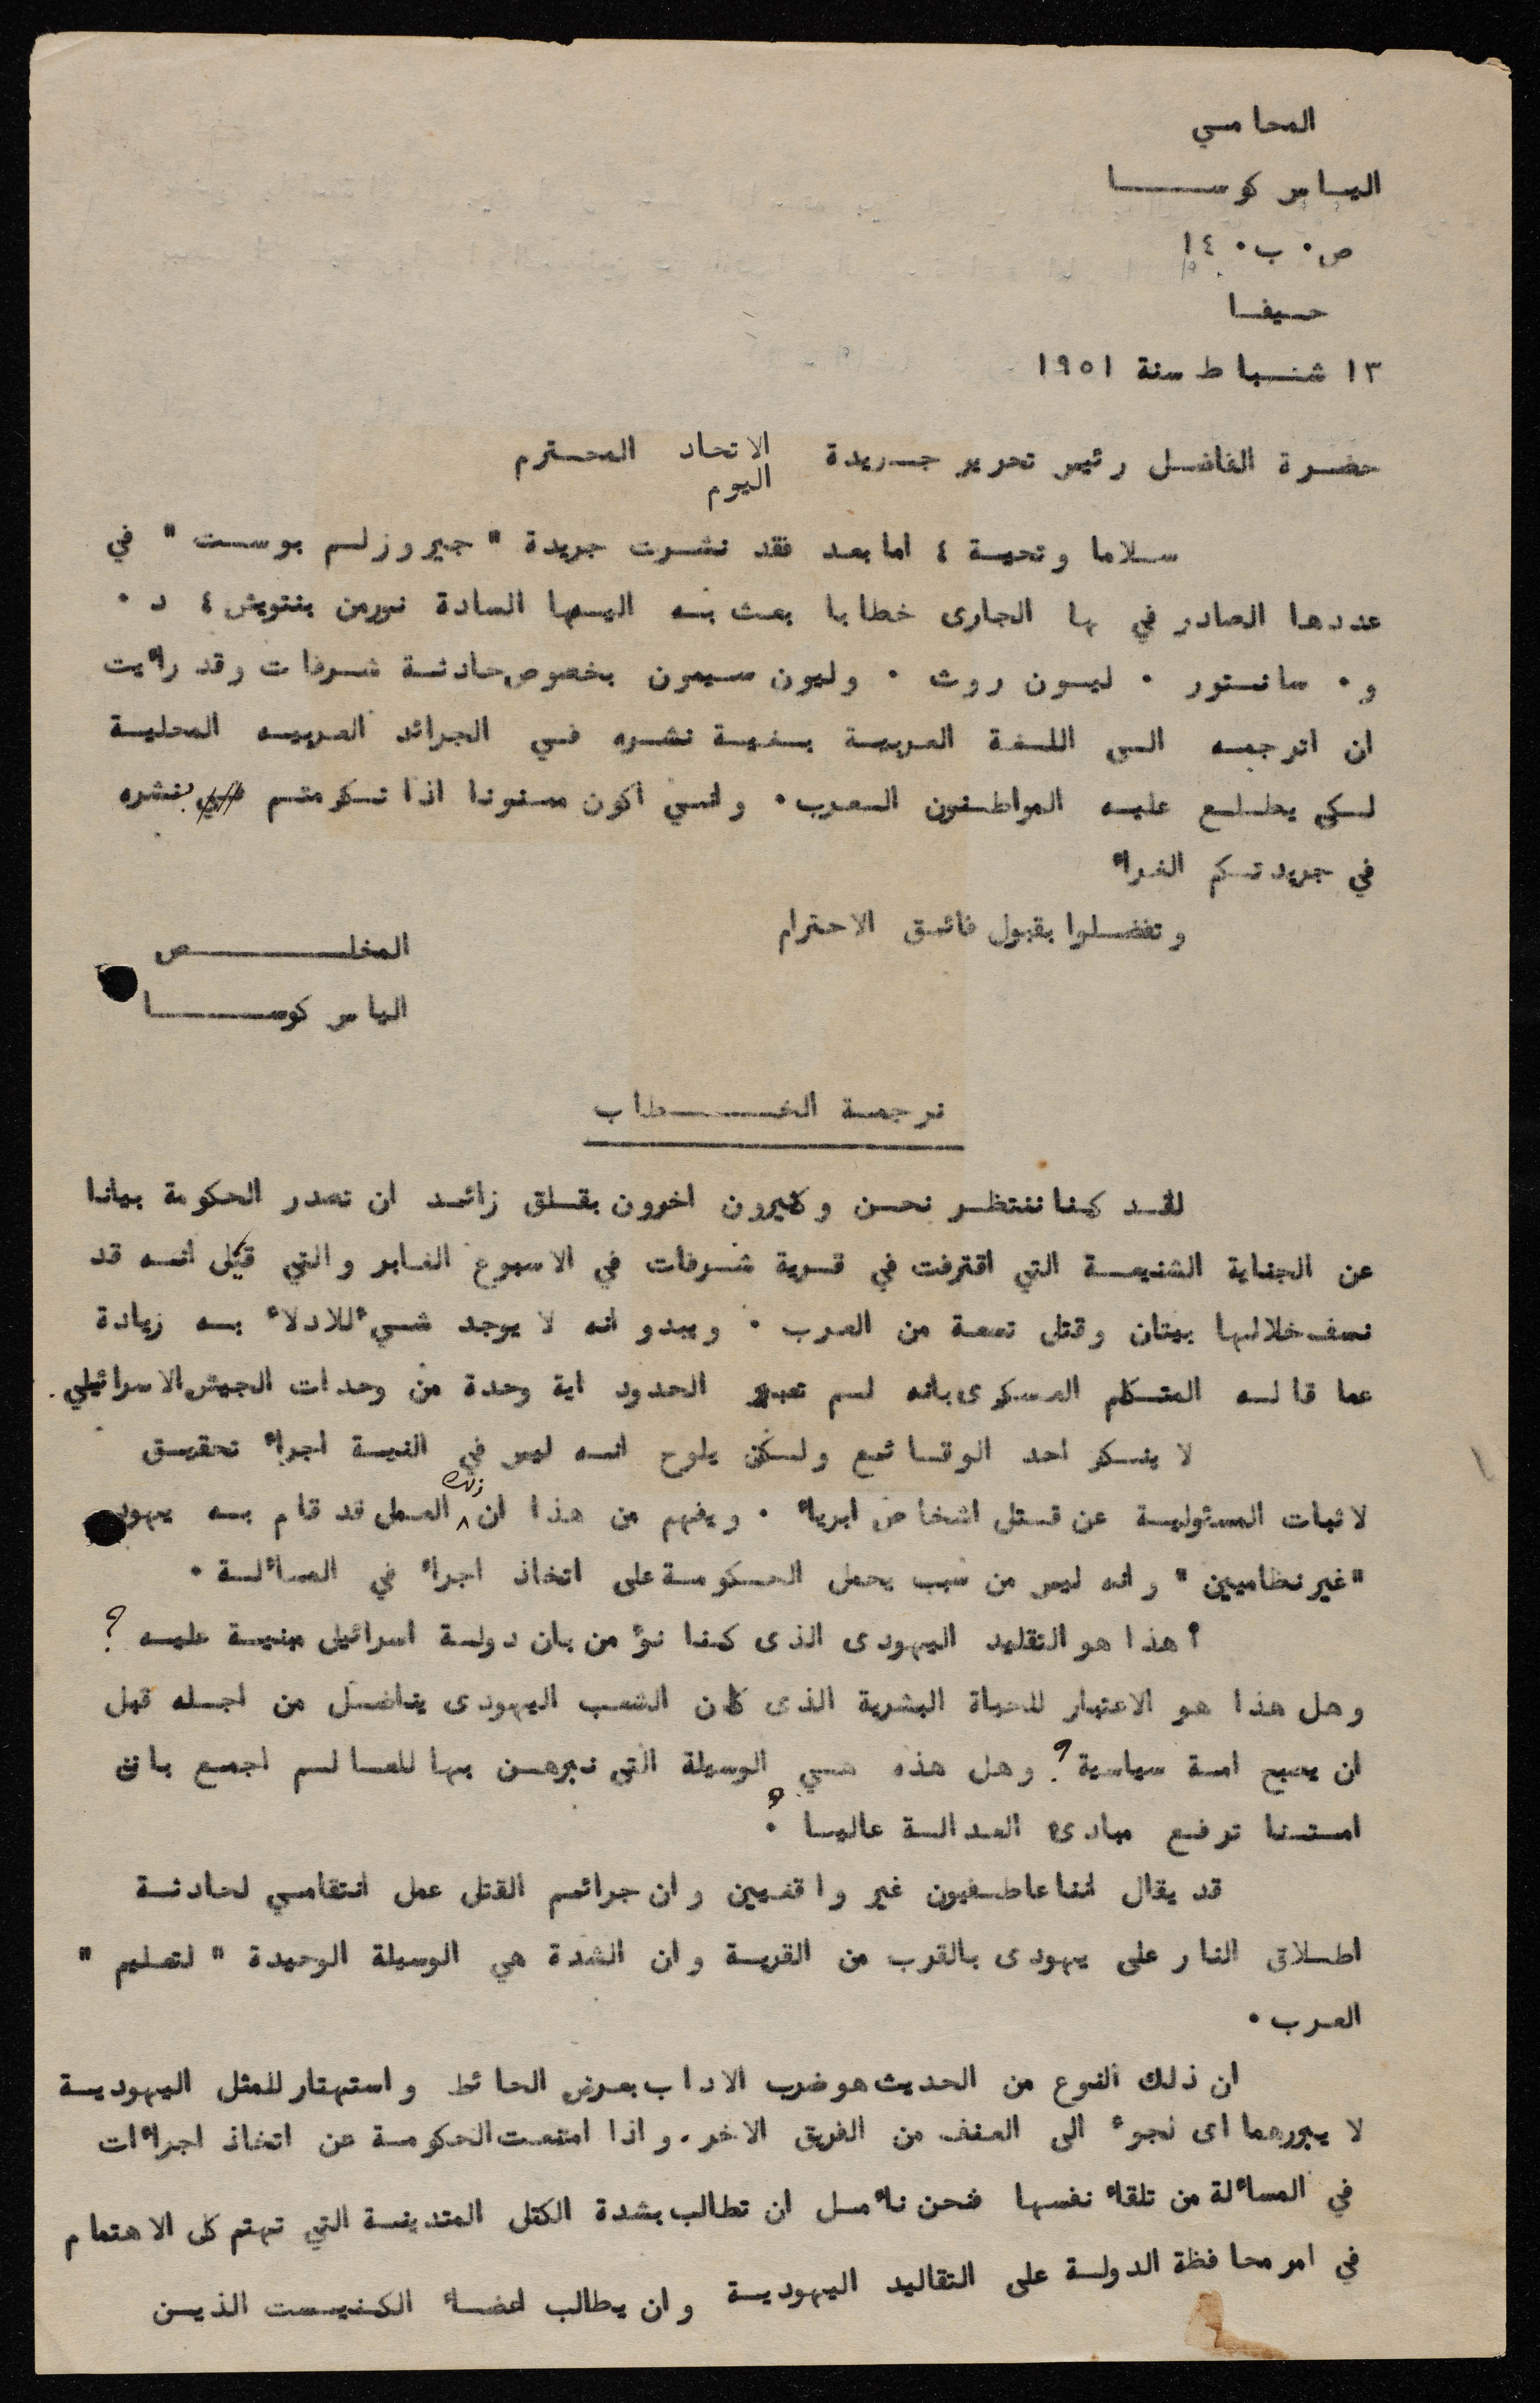 المحامي
الياس كوسا
ص٠ ب٠ ١٤
حيفا
١٣ شباط سنة ١٩٥١
حضرة الفاضل رئيس تحرير جريدة الاتحاد المحترم
اليوم
سلاما وتحية ٤ اما بعد فقد نشرت جريدة " جيروزلم بوست " في
عددها الصادر في الجارى خطابا بعث به اليها السادة نورمن بنتويش ٤ د ٠
و٠ سانتور ٠ ليون روث ٠ وليون سيمون بخصوص حادثة شرفات وقد رأيت
ان اترجمه الى اللغة العربية بغية نشره في الجرائد العربيه المحلية
لكى يطلع عليه المواطنون العرب٠ وانني اكون ممنونا اذا تكرمتم بنشره
في جريدتكم الغراء
وتفضلوا بقبول فائق الاحترام
المخلص
الياس كوسا
ترجمة الخطاب
لقد كنا ننتظر نحن وكثيرون اخرون بقلق زائد ان تصدر الحكومة بيانا
عن الجناية الشنيعة التي اقترفت في قرية شرفات في الاسبوع الغابر والتي قيل انه قد
نسف خلالها بيتان وقتل تسعة من العرب ٠ ويبدو انه لا يوجد شيء للادلاء به زيادة
عما قاله المتكلم العسكرى بانه لم تعبر الحدود اية وحدة من وحدات الجيش الاسرائيلي.
لا ينكر احد الوقائع ولكن يلوح انه ليس في النية اجراء تحقيق
لاثبات المسئولية عن قتل اشخاص ابرياء ٠ ويفهم من هذا ان ذلك العمل قد قام به يهود
"غير نظاميين " وانه ليس من سبب يحمل الحكومة على اتخاذ اجراء في المسألة ٠
أهذا هو التقليد اليهودى الذى كنا نؤمن بان دولة اسرائيل مبنية عليه ؟
وهل هذا هو الاعتبار للحياة البشرية الذى كان الشعب اليهودى يناضل من اجله قبل
ان يصبح امة سياسية ؟ وهل هذه هي الوسيلة التى نبرهن بها للعالم اجمع بان
امتنا ترفع مبادئ العدالة عاليا ؟
قد يقال اننا عاطفيون غير واقعيين وان جرائم القتل عمل انتقامي لحادثة
اطلاق النار على يهودى بالقرب من القرية وان الشدة هي الوسيلة الوحيدة " لتعليم "
العرب ٠
ان ذلك النوع من الحديث هو ضرب الاداب بعرض الحائط واستهتار للمثل اليهودية
لا يبررهما اى لجوء الى العنف من الفريق الاخر. واذا امتنعت الحكومة عن اتخاذ اجراءات
في المسألة من تلقاء نفسها فنحن نأمل ان تطالب بشدة الكتل المتدينة التي تهتم كل الاهتمام
في امر محافظة الدولة على التقاليد اليهودية وان يطالب اعضاء الكنيست الذين